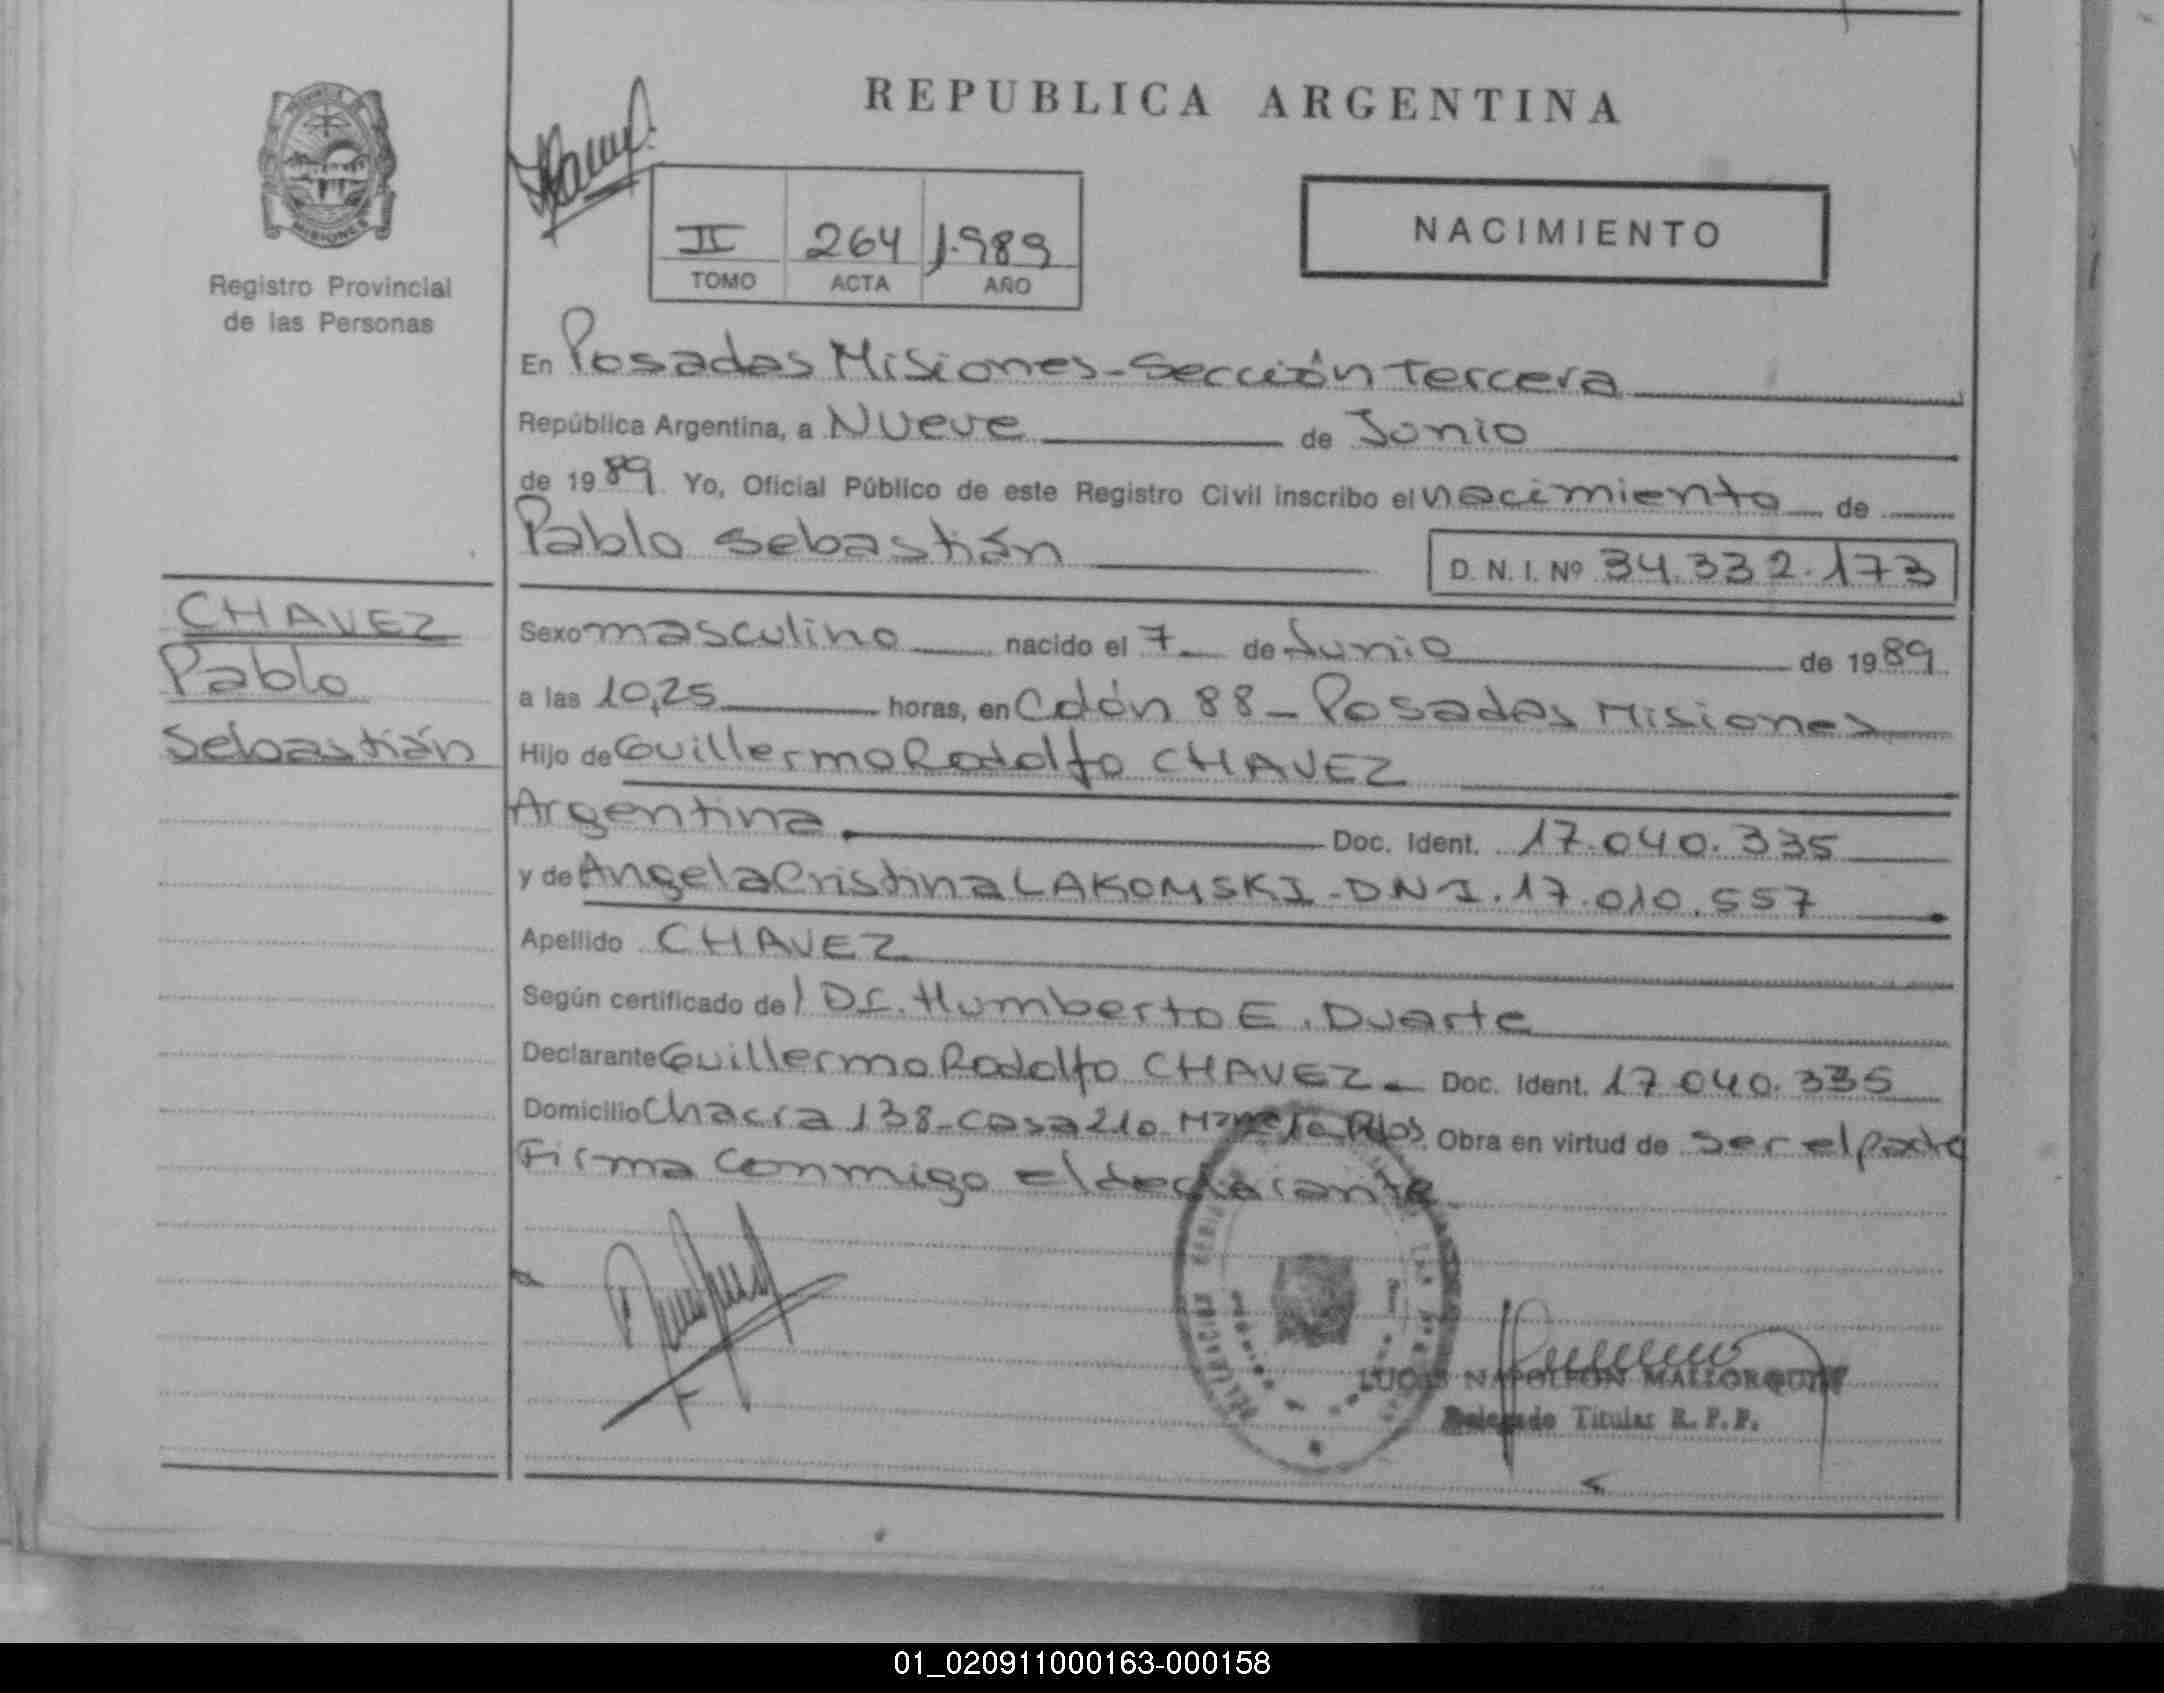 REPUBLICA ARGENTINA
MISIONES
Registro Provincial
de las Personas
II 264 1.989
TOMO ACTA AÑO
NACIMIENTO
En Posadas Misiones-Sección Tercera
República Argentina, a Nueve de Junio
de 1989 Yo, Oficial Público de este Registro Civil inscribo el nacimiento de
Pablo Sebastián
D. N. I. Nº 34.332.173
CHAVEZ
Pablo
Sebastián
Sexo masculino nacido el 7 de Junio de 1989
a las 10,25 horas, en Colón 88 - Posadas Misiones
Hijo de Guillermo Rodolfo CHAVEZ
Argentina Doc. Ident. 17.040.335
y de Angela Cristina LAKOMSKI - DNI. 17.010.557
Apellido CHAVEZ
Según certificado del Dr. Humberto E. Duarte
Declarante Guillermo Rodolfo CHAVEZ - Doc. Ident. 17.040.335
Domicilio Chacra 138-casa 210 Pdas Obra en virtud de ser el padre
Firma conmigo el declarante
LUCAS NAPOLEON MALLORQUIN
Delegado Titular R. P. P.
01_020911000163-000158